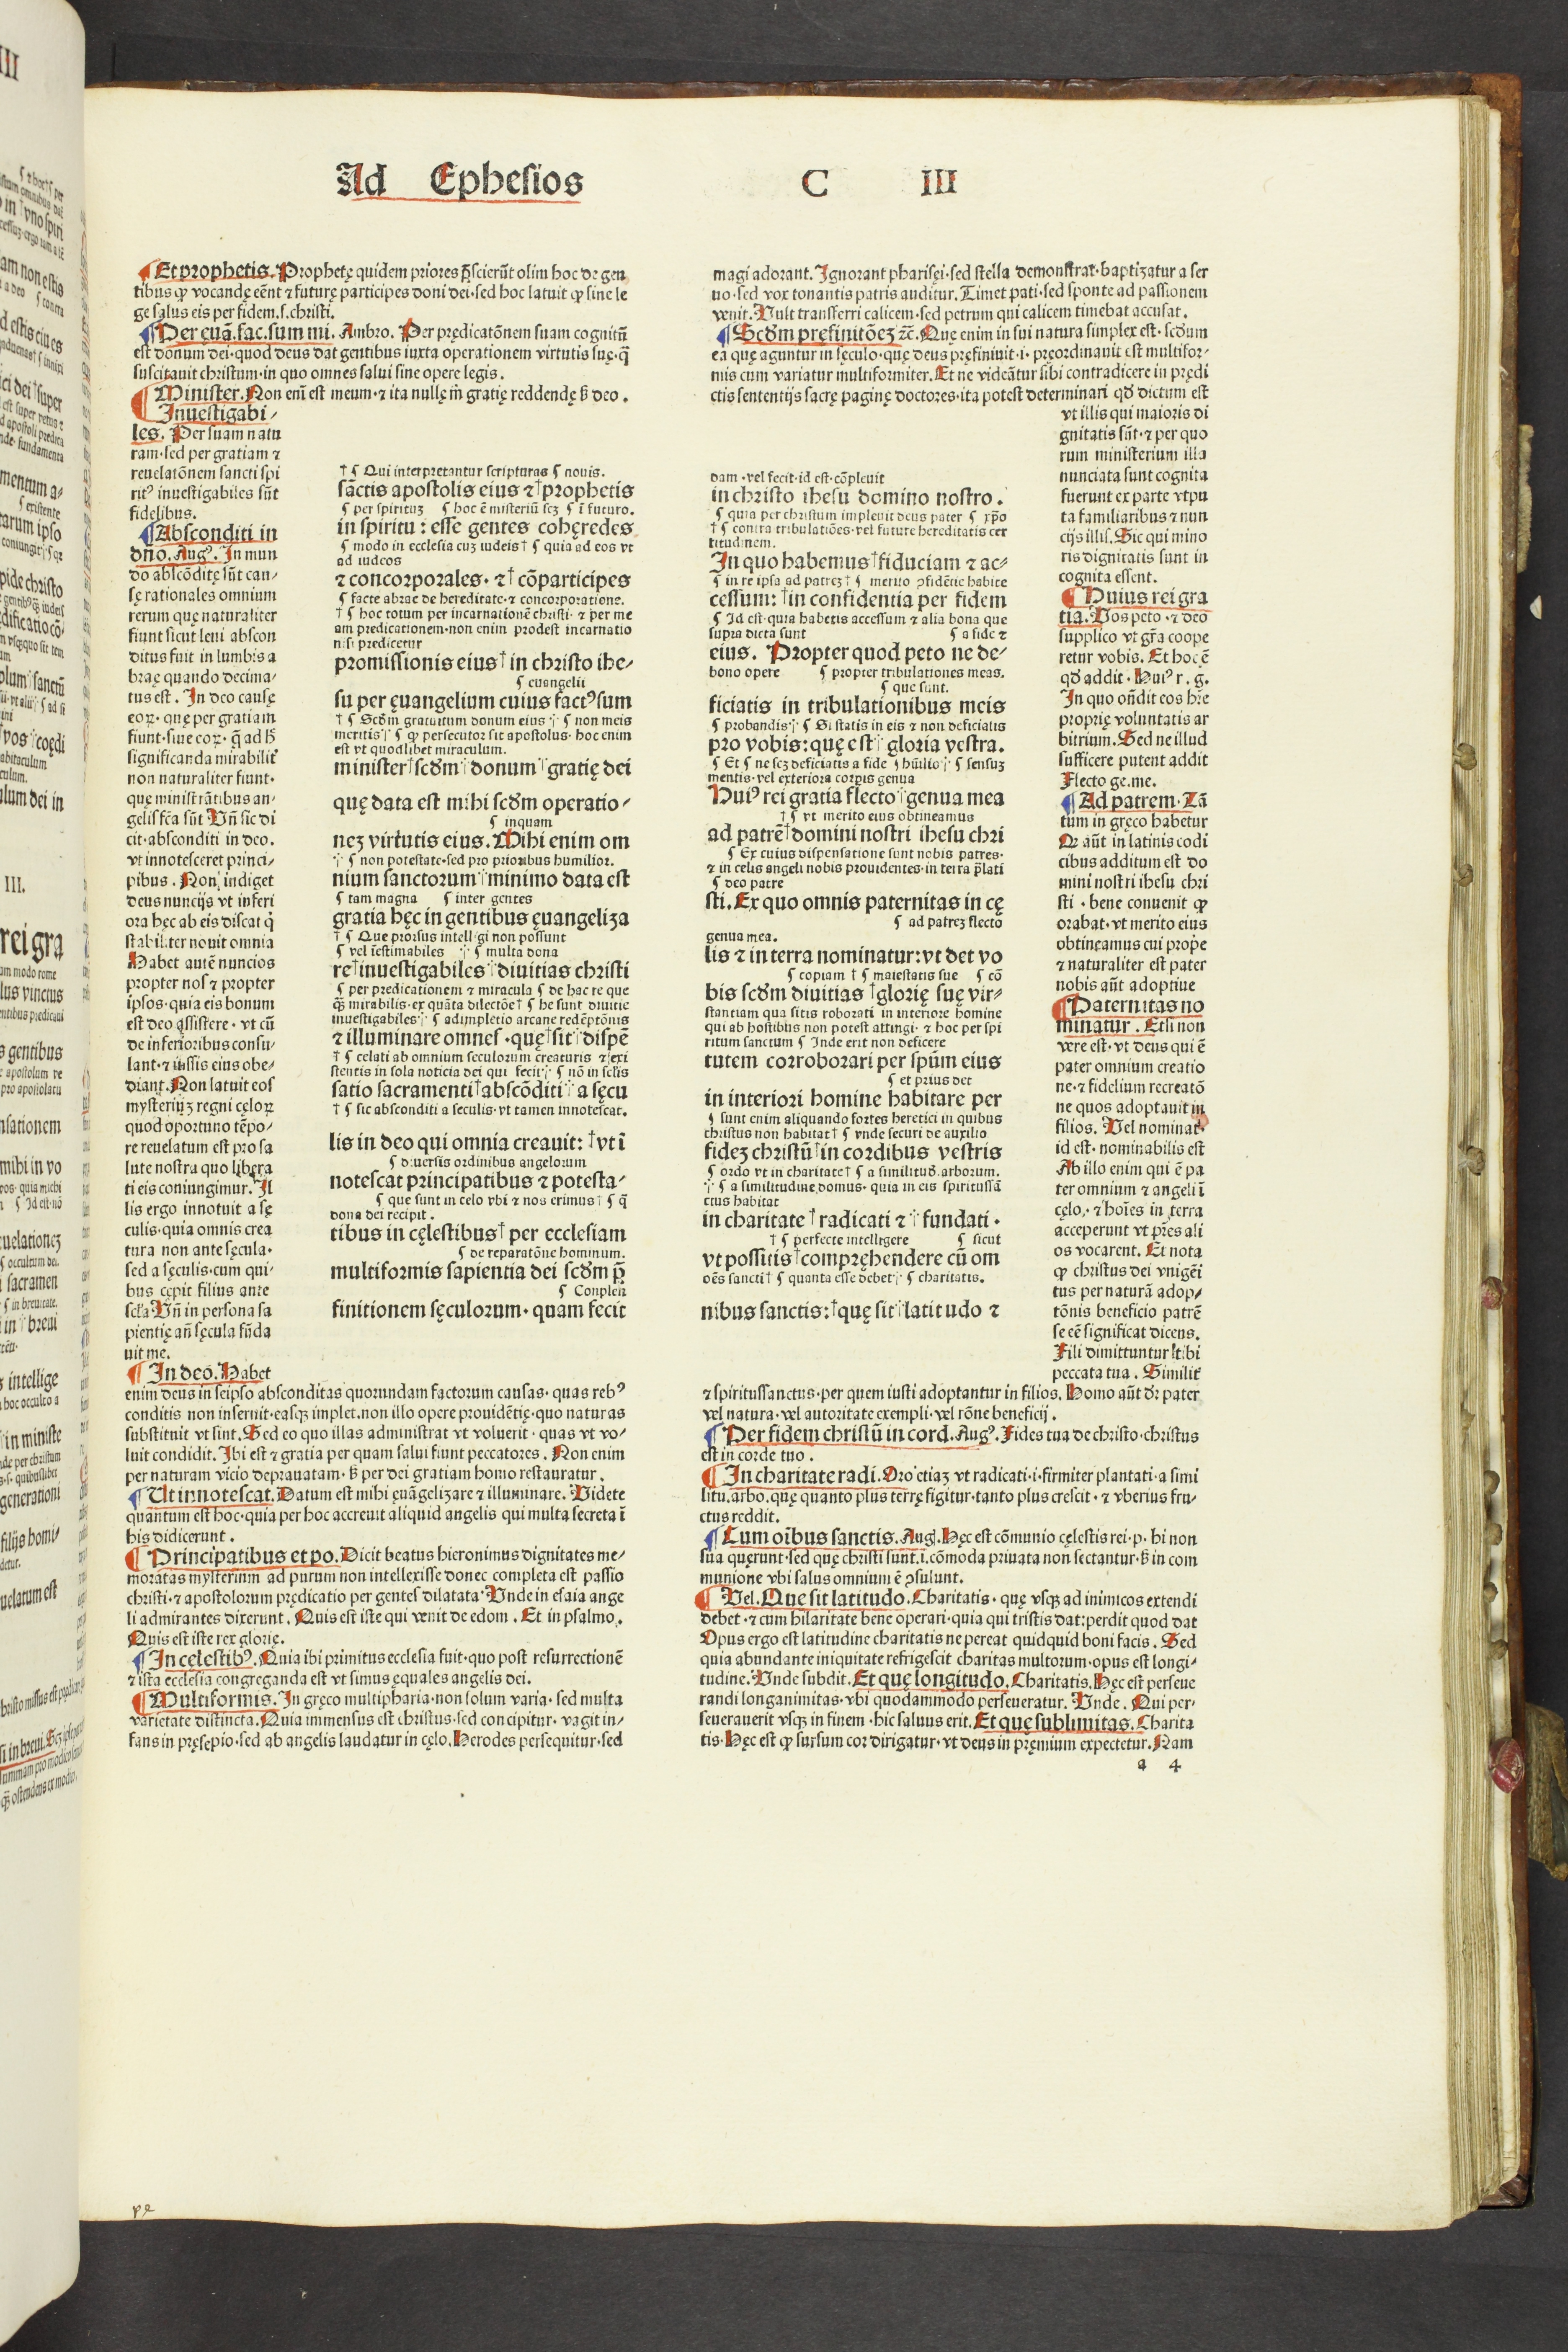 Ad Ephesios C III
¶ Et prophetis. Prophetę quidem priores p̄scierūt olim hoc de gen
tibus ꝙ vocandę eēnt ⁊ futurę participes doni dei·sed hoc latuit ꝙ sine le
ge salus eis per fidem.s.christi.
¶ Per euā.fac.sum mi. Ambro. Per prędicatōnem suam cognitū
est donum dei·quod deus dat gentibus iuxta operationem virtutis suę·q̄
suscitauit christum·in quo omnes salui sine opere legis.
¶ Minister. Non eni est meum·⁊ ita nullę mī gratię reddendę ß deo.
Inuestigabi⸗
les. Per suam natu
ram·sed per gratiam ⁊
reuelatōnem sancti spi
ritꝰ inuestigabiles sūt
fidelibus.
¶ Absconditi in
dn̄o. Augꝰ. In mun
do abscōditę sūt cau⸗
sę rationales omnium
rerum que naturaliter
fiunt sicut leui abscon
ditus fuit in lumbis a
braę quando decima⸗
tus est. In deo causę
eoꝝ· quę per gratiam
fiunt·siue eoꝝ· q̄ ad h̄
significanda mirabilit͛
non naturaliter fiunt·
quę ministrātibus an⸗
gelis fc̄a sūt Vn̄ sic di
cit·absconditi in deo.
vt innotesceret princi⸗
pibus. Non indiget
deus nuncijs vt inferi
ora hęc ab eis discat q̇
stabiliter nouit omnia
Habet autē nuncios
propter nos ⁊ propter
ipsos·quia eis bonum
est deo assistere· vt cū
de inferioribus consu⸗
lant·⁊ iussis eius obe⸗
diant. Non latuit eos
mysteriuꝫ regni cęloꝝ
quod oportuno tēpo⸗
re reuelatum est pro sa
lute nostra quo libera
ti eis coniungimur. Il
lis ergo innotuit a sę
culis·quia omnis crea
tura non ante sęcula·
sed a sęculis·cum qui⸗
bus cępit filius ante
scl̄a·Vn̄ in persona sa
pientię an̄ sęcula fūda
uit me.
¶ In deo. Habet
enim deus in seipso absconditas quorundam factorum causas·quas rebꝰ
conditis non inseruit·easqꝫ implet.non illo opere prouidētię·quo naturas
substituit vt sint. Sed eo quo illas administrat vt voluerit·quas vt vo⸗
luit condidit. Ibi est ⁊ gratia per quam salui fiunt peccatores. Non enim
per naturam vicio deprauatam·ß per dei gratiam homo restauratur.
¶ Ut innotescat. Datum est mihi euāgelizare ⁊ illuminare. Videte
quantum est hoc·quia per hoc accreuit aliquid angelis qui multa secreta ī
his didicerunt.
¶ Principatibus et po. Dicit beatus hieronimus dignitates me⸗
moratas mysterium ad purum non intellexisse donec completa est passio
christi·⁊ apostolorum prędicatio per gentes dilatata·Vnde in esaia ange
li admirantes dixerunt. Quis est iste qui venit de edom. Et in psalmo.
Quis est iste rex glorię.
¶ In cęlestibꝰ. Quia ibi primitus ecclesia fuit·quo post resurrectionē
⁊ ista ecclesia congreganda est vt simus equales angelis dei.
¶ Multiformis. In gręco multipharia·non solum varia·sed multa
varietate distincta. Quia immensus est christus·sed concipitur·vagit in⸗
fans in pręsepio·sed ab angelis laudatur in cęlo. Herodes persequitur·sed
† ¶ Qui interpretantur scripturas ¶ nouis.
sāctis apostolis eius ⁊ †prophetis
¶ per spirituꝫ ¶ hoc ē misteriū scꝫ ¶ ī futuro.
in spiritu: esse gentes cohęredes
¶ modo in ecclesia cuꝫ iudeis † ¶ quia ad eos vt
ad iudeos
⁊ concorporales· ⁊† cōparticipes
¶ facte abrae de hereditate·⁊ concorporatione.
† ¶ hoc totum per incarnationē christi·⁊ per me
am predicationem·non enim prodest incarnatio
nisi predicetur
promissionis eius† in christo ihe⸗
¶ euangelii
su per ęuangelium cuius factꝰ sum
† ¶ Scdm gratuitum donum eius ⁝ ¶ non meis
meritis ⁝ ¶ ꝙ persecutor sit apostolus·hoc enim
est vt quodlibet miraculum.
minister† scdm donum gratię dei
quę data est mihi scdm operatio⸗
¶ inquam
neꝫ virtutis eius. Mihi enim om
¶ non potestate·sed pro prioribus humilior.
nium sanctorum minimo data est
¶ tam magna ¶ inter gentes
gratia hęc in gentibus ęuangeliza
† ¶ Que prorsus intelligi non possunt
¶ vel īestimabiles ¶ multa dona
re† inuestigabiles diuitias christi
¶ per predicationem ⁊ miracula ¶ de hac re que
q̄ꝫ mirabilis·ex quāta dilectōe † ¶ he sunt diuitie
inuestigabiles ⁝ ¶ adimpletio arcane redēptōnis
⁊ illuminare omnes· quę† sit dispē
† ¶ celati ab omnium seculorum creaturis ⁊ exi
stentis in sola noticia dei qui fecit ⁝ ¶ nō in seclis
satio sacramenti† abscōditi a sęcu
† ¶ sic absconditi a seculis·vt tamen innotescat.
lis in deo qui omnia creauit: †vt ī
¶ diuersis ordinibus angelorum
notescat principatibus ⁊ potesta⸗
¶ que sunt in celo vbi ⁊ nos erimus † ¶ q̄
dona dei recipit.
tibus in cęlestibus† per ecclesiam
¶ de reparatōne hominum.
multiformis sapientia dei scdm p̄
¶ Conplen
finitionem sęculorum· quam fecit
magi adorant. Ignorant pharisęi·sed stella demonstrat·baptizatur a ser
uo·sed vox tonantis patris auditur. Timet pati·sed sponte ad passionem
venit. Vult transferri calicem·sed petrum qui calicem timebat accusat.
¶ Scdm prefinitōeꝫ ⁊c̄. Que enim in sui natura simplex est·scdum
ea quę aguntur in sęculo·quę deus pręfiniuit·i·pręordinauit est multifor⸗
mis cum variatur multiformiter. Et ne videātur sibi contradicere in prędi
ctis sententijs sacrę paginę doctores·ita potest determinari qd̄ dictum est
dam·vel fecit·id est·cōpleuit
in christo ihesu domino nostro.
¶ quia per christum impleuit deus pater ¶ xp̄o
† ¶ contra tribulatiōes·vel future hereditatis cer
titudinem.
In quo habemus† fiduciam ⁊ ac⸗
¶ in re ipsa ad patreꝫ † ¶ merito ꝯfidētie habite
cessum: †in confidentia per fidem
¶ Id est·quia habetis accessum ⁊ alia bona que
supra dicta sunt ¶ a fide ⁊
eius. Propter quod peto ne de⸗
bono opere ¶ propter tribulationes meas.
¶ que sunt.
ficiatis in tribulationibus meis
¶ probandis ⁝ ¶ Si statis in eis ⁊ non deficiatis
pro vobis: quę est gloria vestra.
¶ Et ¶ ne scꝫ deficiatis a fide ¶ hūilio ⁝ ¶ sensuꝫ
mentis·vel exteriora corpis genua
Huiꝰ rei gratia flecto genua mea
† ¶ vt merito eius obtineamus
ad patrē† domini nostri ihesu chri
¶ Ex cuius dispensatione sunt nobis patres·
⁊ in celis angeli nobis prouidentes·in terra p̄lati
¶ deo patre
sti. Ex quo omnis paternitas in cę
¶ ad patreꝫ flecto
genua mea.
lis ⁊ in terra nominatur: vt det vo
¶ copiam † ¶ maiestatis sue ¶ cō
bis scdm diuitias †glorię suę vir⸗
stantiam qua sitis roborati in interiore homine
qui ab hostibus non potest attingi·⁊ hoc per spi
ritum sanctum ¶ Inde erit non deficere
tutem corroborari per spūm eius
¶ et prius det
in interiori homine habitare per
¶ sunt enim aliquando fortes heretici in quibus
christus non habitat † ¶ vnde securi de auxilio
fideꝫ christū† in cordibus vestris
¶ ordo vt in charitate † ¶ a similitud. arborum.
¶ a similitudine domus·quia in eis spiritussā
ctus habitat
in charitate †radicati ⁊ fundati·
† ¶ perfecte intelligere ¶ sicut
vt possitis† compręhendere cū om
oēs sancti † ¶ quanta esse debet ⁝ ¶ charitatis.
nibus sanctis: †quę sit latitudo ⁊
vt illis qui maioris di
gnitatis sūt·⁊ per quo
rum ministerium illa
nunciata sunt cognita
fuerunt ex parte vtpu
ta familiaribus ⁊ nun
cijs illis. Sic qui mino
ris dignitatis sunt in
cognita essent.
¶ Huius rei gra
tia. Vos peto·⁊ deo
supplico vt gr̄a coope
retur vobis. Et hoc ē
qd̄ addit·Huiꝰ r. g.
In quo on̄dit eos hr̄e
proprię voluntatis ar
bitrium. Sed ne illud
sufficere putent addit
Flecto ge.me.
¶ Ad patrem. Tā
tum in gręco habetur
Qꝛ aūt in latinis codi
cibus additum est do
mini nostri ihesu chri
sti· bene conuenit ꝙ
orabat·vt merito eius
obtineamus cui prop̄e
⁊ naturaliter est pater
nobis aūt adoptiue
¶ Paternitas no
minatur. Etsi non
vere est·vt deus qui ē
pater omnium creatio
ne·⁊ fidelium recreatō
ne quos adoptauit in
filios. Vel nominat͛
id est·nominabilis est
Ab illo enim qui ē pa
ter omnium ⁊ angeli ī
cęlo·⁊ hoīes in terra
acceperunt vt pr̄es ali
os vocarent. Et nota
ꝙ christus dei vnigēi
tus per naturā adop⸗
tōnis beneficio patrē
se eē significat dicens.
Fili dimittuntur tibi
peccata tua. Similit͛
⁊ spiritussanctus·per quem iusti adoptantur in filios. Homo aūt dr̄ pater
vel natura·vel autoritate exempli·vel rōne beneficij.
¶ Per fidem christū in cord. Augꝰ. Fides tua de christo·christus
est in corde tuo.
¶ In charitate radi. Oro etiaꝫ vt radicati·i·firmiter plantati·a simi
litu.arbo.quę quanto plus terrę figitur·tanto plus crescit·⁊ vberius fru⸗
ctus reddit.
¶ Cum oībus sanctis. Aug. Hęc est cōmunio cęlestis rei.p. hi non
sua quęrunt·sed quę christi sunt.i.cōmoda priuata non sectantur·ß in com
munione vbi salus omnium ē ꝯsulunt.
¶ Vel. Que sit latitudo. Charitatis·quę vsqꝫ ad inimicos extendi
debet·⁊ cum hilaritate bene operari·quia qui tristis dat:perdit quod dat
Opus ergo est latitudine charitatis ne pereat quidquid boni facis. Sed
quia abundante iniquitate refrigescit charitas multorum·opus est longi⸗
tudine. Vnde subdit. Et quę longitudo. Charitatis. Hęc est perseue
randi longanimitas·vbi quodammodo perseueratur. Vnde. Qui per⸗
seuerauerit vsqꝫ in finem·hic saluus erit. Et quę sublimitas. Charita
tis·Hęc est ꝙ sursum cor dirigatur·vt deus in pręmium expectetur. Nam
a 4